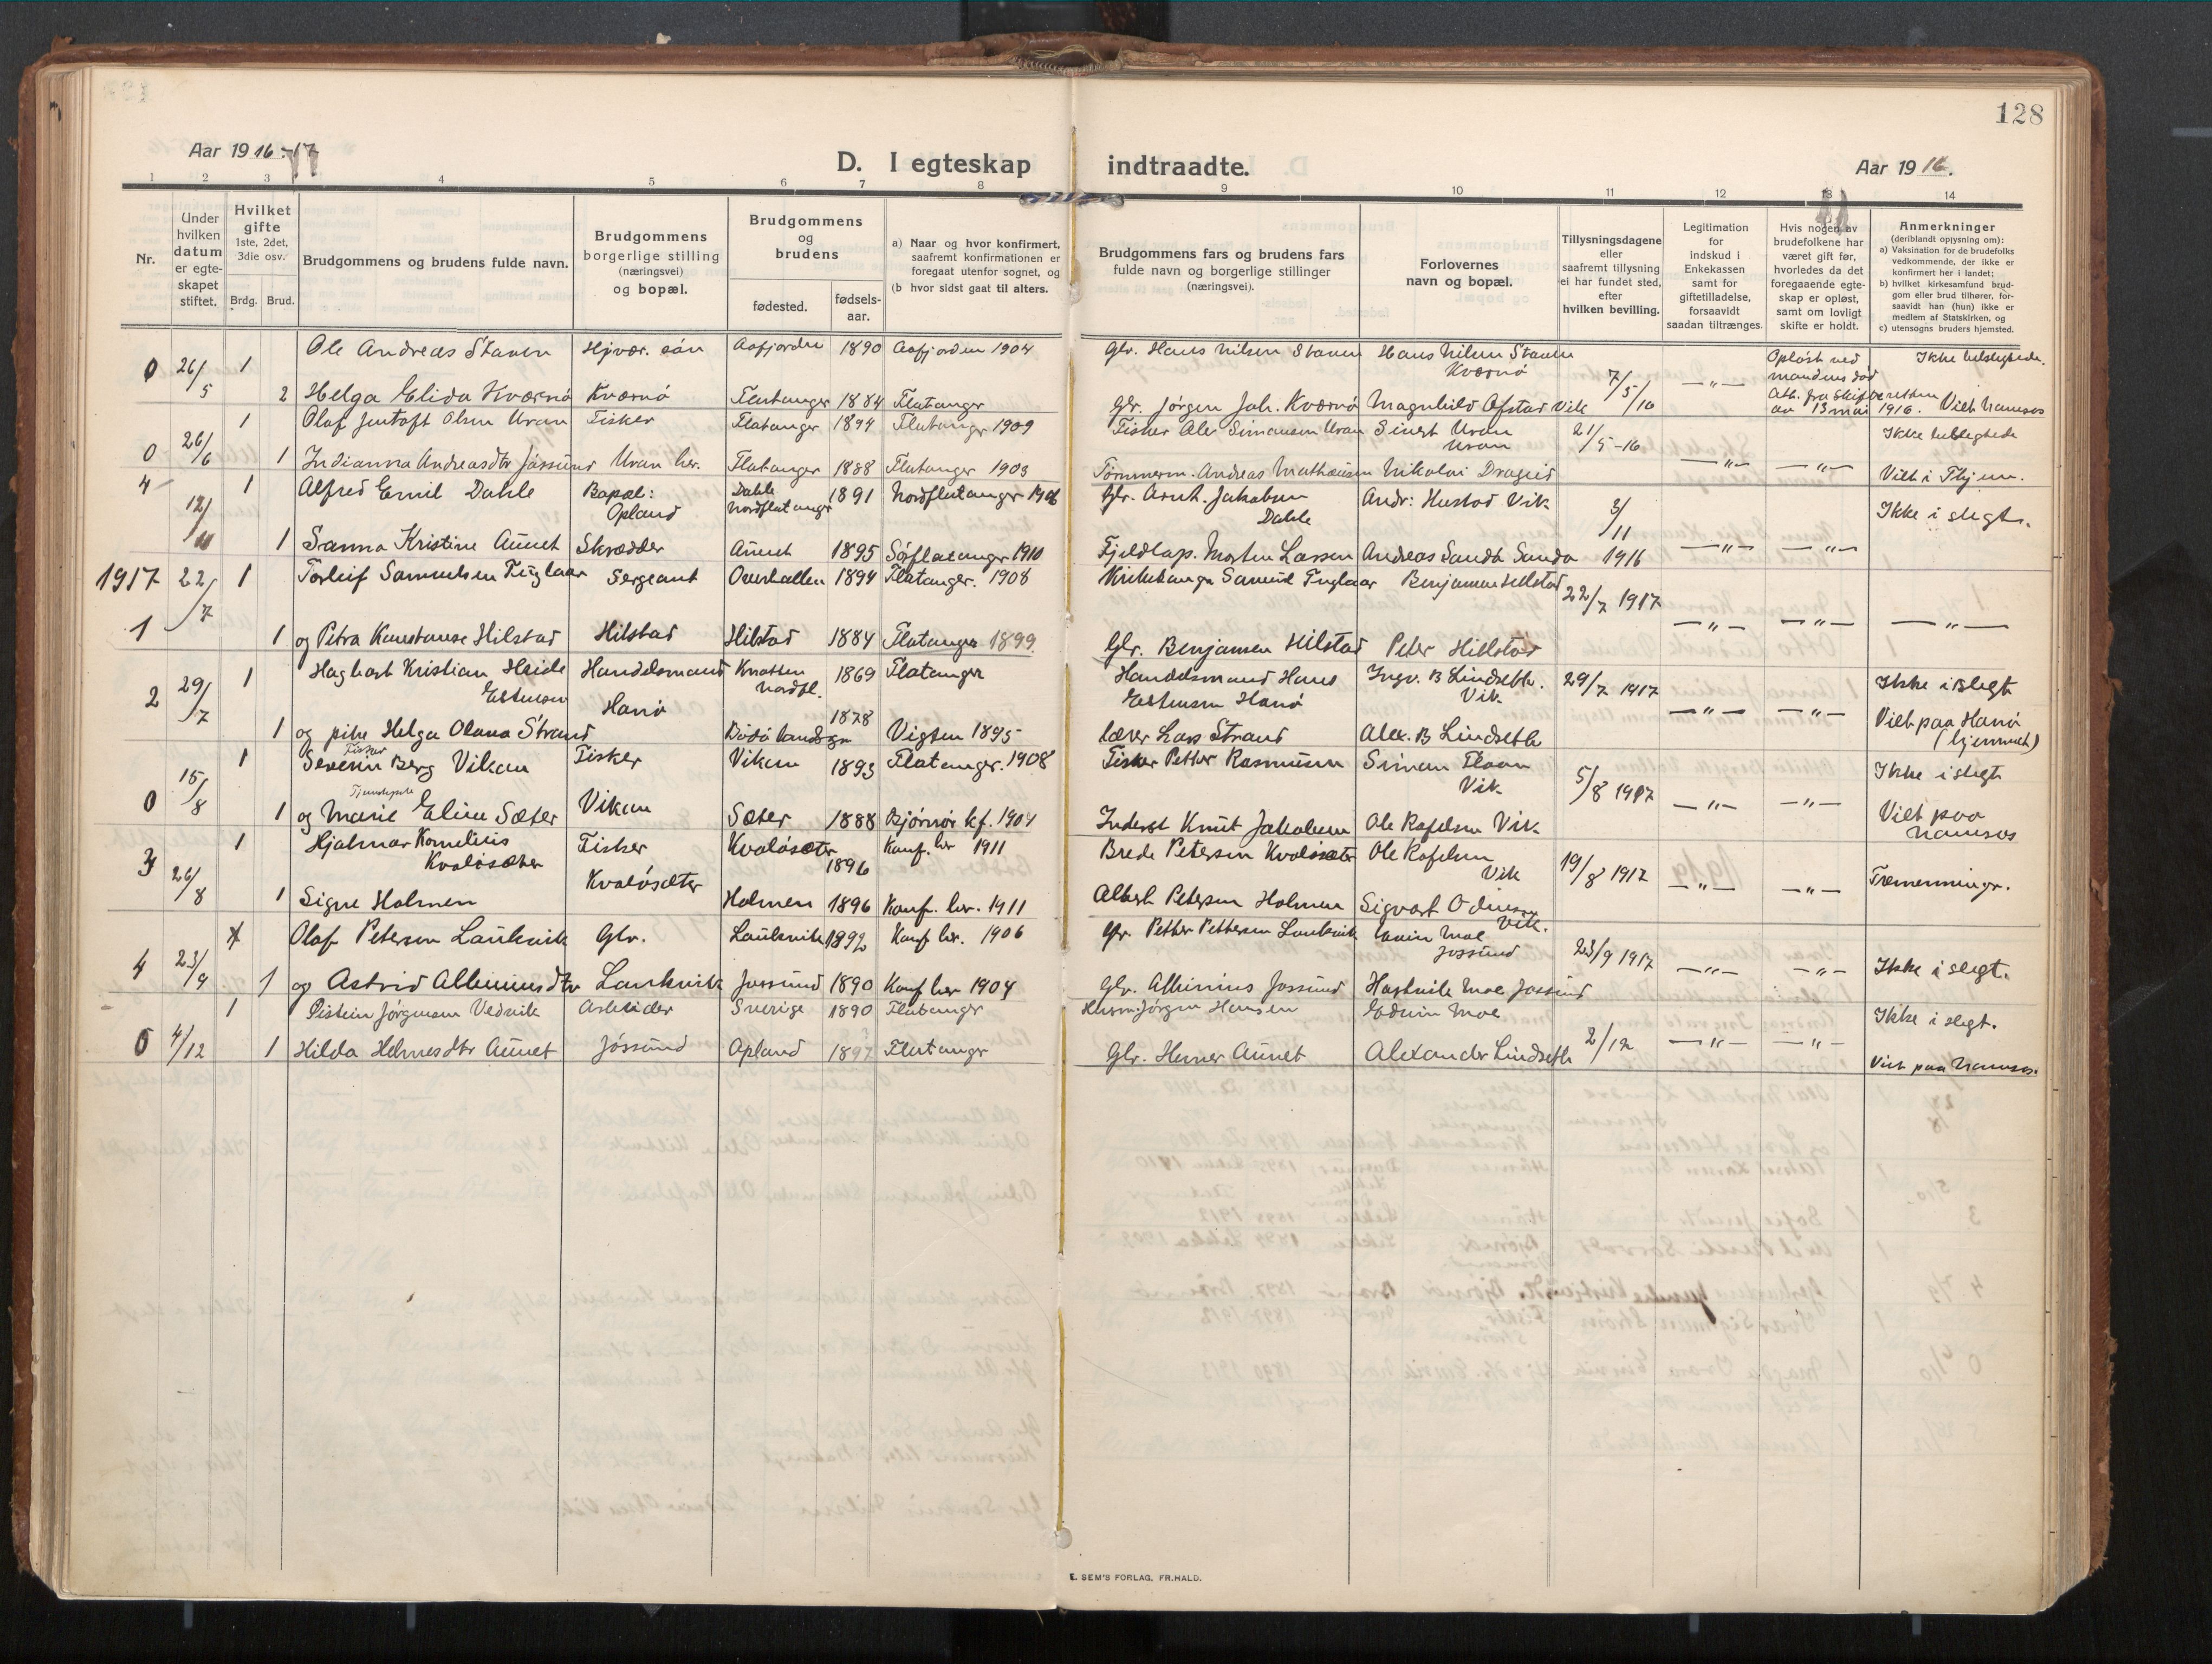 128
Aar 1916-17
D. I egteskap indtraadte.
Aar 1916.
1 2 3 4 5 6 7 8 9 10 11 12 13 14
Nr.
Under hvilken datum er egteskapet stiftet.
Hvilket gifte 1ste, 2det, 3die osv.
Brdg. Brud.
Brudgommens og brudens fulde navn.
Brudgommens borgerlige stilling (næringsvei) og bopæl.
Brudgommens og brudens
fødested.
fødselsaar.
a) Naar og hvor konfirmert, saafremt konfirmationen er foregaat utenfor sognet, og
(b hvor sidst gaat til alters.
Brudgommens fars og brudens fars fulde navn og borgerlige stillinger (næringsvei).
Forlovernes navn og bopæl.
Tillysningsdagene eller saafremt tillysning ei har fundet sted, efter hvilken bevilling.
Legitimation for indskud i Enkekassen samt for giftetilladelse, forsaavidt saadan tiltrænges.
Hvis nogen av brudefolkene har været gift før, hvorledes da det foregaaende egteskap er opløst, samt om lovligt skifte er holdt.
Anmerkninger (deriblandt oplysning om):
a) Vaksination for de brudefolks vedkommende, der ikke er konfirmert her i landet;
b) hvilket kirkesamfund brudgom eller brud tilhører, forsaavidt han (hun) ikke er medlem af Statskirken, og
c) utensogns bruders hjemsted.
0 26/5 1 Ole Andreas Staven Aafjorden 1890 Aafjorden 1904 Gbr. Hans Nilsen Staven Hans Nilsen Staven Kværnø 7/5/16 — " — Opløst ved mandens død
2 Helga Elida Kværnø Kværnø Flatanger 1884 Flatanger Gbr. Jørgen Joh. Kværnø Magnhild Ofstad Vik Att. fra Skifteretten av 13 mai 1916. Viet Namsos
0 26/6 1 Olaf Jentoft Olsen Uran Fisker Flatanger 1894 Flatanger 1909 Fisker Ole Simonsen Uran Sivert Uran Uran 21/5-16 — " — — " —
1 Indianna Andreasdtr Jøssund Uran her. Flatanger 1888 Flatanger 1903 Tømmerm. Andreas Mathæusen Nikolai Drageid Viet i Hjem.
4 12/11 1 Alfred Emil Dahle Bopæl: Opland Dahle Nordflatanger 1891 Nordflatanger 1906 Gbr. Arnt. Jakobsen Dahle Andr: Hustad Vik 3/11 1916 — " — — " — Ikke i slegt.
1 Sanna Kristine Aunet Skrædder Aunet 1895 Sørflatanger 1910 Fjeldlap. Morten Larsen Andreas Sandt Sanda
1917 22/7 1 Torleif Samuelsen Fuglaar Sergeant Overhallen 1894 Flatanger. 1908 Kirkesanger Samuel Fuglaar Benjamin Hillstad 22/7 1917 — " — — " — — " —
1 1 og Petra Konstanse Hilstad Hilstad Hilstad 1884 Flatanger 1899 Gbr. Benjamin Hilstad Peter Hillstad
2 29/7 1 Hagbart Kristian Heide Estensen Handelsmand Hanø Knotten Nordfl. 1869 Flatanger Handelsmand Hans Estensen Hanø Ingv. B Lindseth. Vik 29/7 1917 — " — — " — Ikke i slegt
1 og pike Helga Olava Strand Bodø landsogn 1878 Vigten 1895 lærer Lars Strand Alex. B Lindseth Viet paa Hanø (hjemmet)
0 15/8 1 Severin Berg Vikan Fisker Vikan 1893 Flatanger. 1908 Fisker Petter Rasmussen Simen Floan Vik 5/8 1917 — " — — " — Ikke i slegt
1 og Tjenstepike Marie Eline Sæter Vikan Sæter 1888 Bjørnør kf. 1904 Inderst Knut Jakobsen Ole Rafelsen Vik Viet paa Namsos
3 26/8 1 Hjalmar Kornelius Kvaløsæter Fisker Kvaløsæter Kvaløsæter 1896 Konf. her 1911 Brede Petersen Kvaløsæter Ole Rafelsen Vik 19/8 1917 — " — — " — Tremenninger.
1 Signe Holmen Holmen 1896 Konf. her. 1911 Albert Petersen Holmen Sigvart Odinsen Vik.
4 23/9 1 Olaf Petersen Laukvik Gbr. Laukvik 1892 Konf her. 1906 Gbr. Petter Pettersen Laukvik Edvin Moe Jossund 23/9 1917 — " — — " — Ikke i slegt.
1 og Astrid Albiniusdtr Laukvik Jossund 1890 Konf her 1904 Gbr. Albinius Jossund Hartvik Moe Jossund
5 4/12 1 Øistein Jørgensen Vedvik Arbeider Sverige 1890 Flatanger Husm. Jørgen Hansen Edvin Moe 2/12 — " — — " — Ikke i slegt.
1 Hilda Helmesdtr Aunet Jössund Opland 1897 Flatanger Gbr. Helmer Aunet Alexander Lindseth Viet paa Namsos.
E. SEM'S FORLAG, FR.HALD.